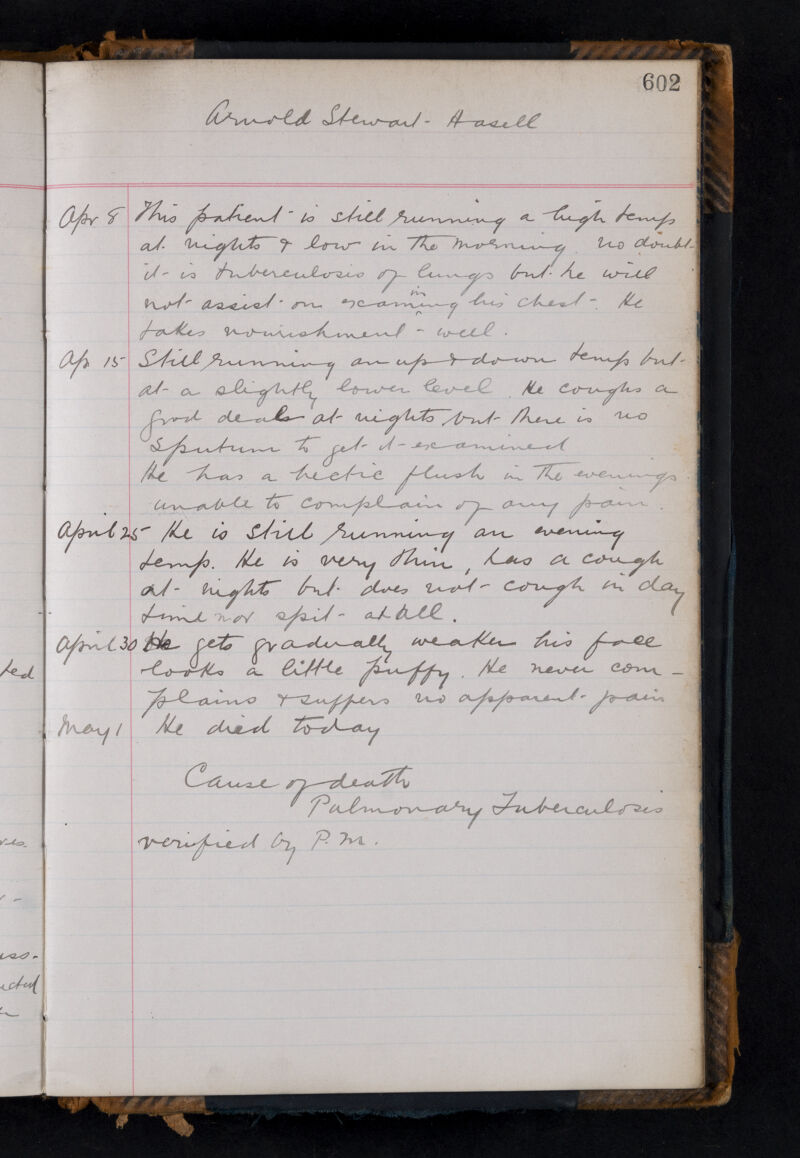 602
Arnold Stewart - Hasell
Apr 8 This patient is still running a high temp
at nights & low in the morning. no doubt
it is tuberculosis of lungs but he will
not assist on examining his chest - He
takes nourishment - well.
Ap 15 Still running an up & down temp but
at a slightly lower level. He coughs a
good deals at nights but there is no
sputum to get it examined
He has a hectic flush in the evenings
unable to complain of any pain.
April 25 He is still running an evening
temp. He is very thin, has a cough
at nights but does not cough in day
time nor spit at all.
April 30 He gets gradually weaker his face
looks a little puffy. He never com-
plains & suffers no apparent pain
May 1 He died today
Cause of death
Pulmonary Tuberculosis
verified by P.M.
ted